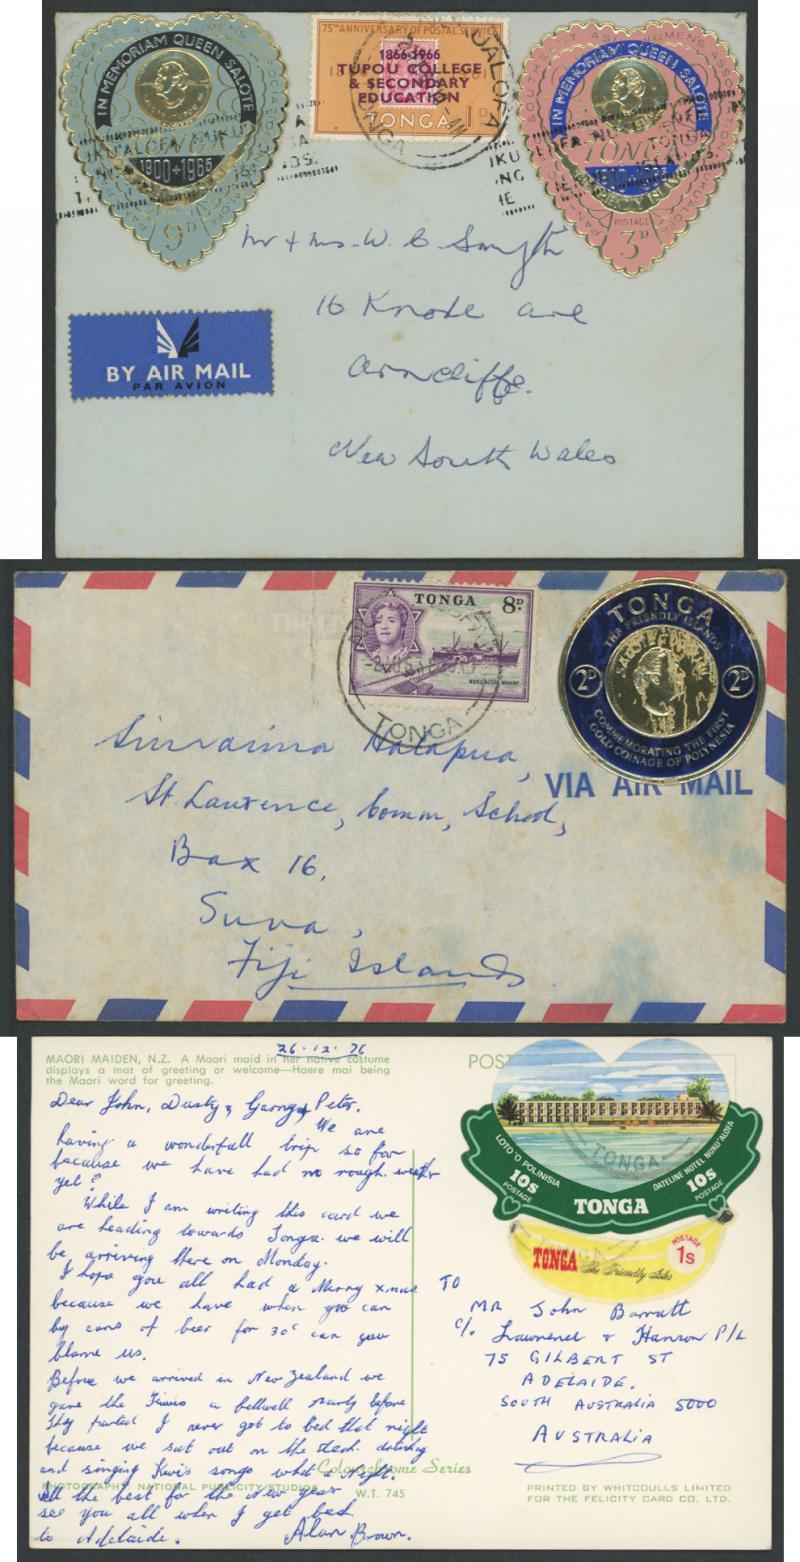 IN MEMORIAM QUEEN SALOTE
1900+1965
9D
75TH ANNIVERSARY OF POSTAL SERVICE
1866-1966
TUPOU COLLEGE
& SECONDARY
EDUCATION
TONGA 1D
IN MEMORIAM QUEEN SALOTE
TONGA
1900-1965
POSTAGE
3D
Mr & Mrs. W. C. Smyth
16 Knoll ave
Arncliffe.
New South Wales
BY AIR MAIL
PAR AVION
TONGA 8D
NUKUALOFA WHARF
TONGA
TONGA
THE FRIENDLY ISLANDS
2D 2D
COMMEMORATING THE FIRST
GOLD COINAGE OF POLYNESIA
VIA AIR MAIL
Halapua,
St. Laurence, Comm, School,
Bax 16,
Suva,
Fiji Islands
26.12.76
MAORI MAIDEN, N.Z. A Maori maid in her native costume
displays a mat of greeting or welcome—Haere mai being
the Maori word for greeting.
POST
Dear John, Dusty, & Peter.
We are
having a wonderfull trip so far
because we have had no rough weather
yet?
While I am writing this card we
are heading towards Tonga. we will
be arriving there on Monday.
I hope you all had a Merry Xmas
because we have when you can
by cans of beer for 30c can you
blame us.
Before we arrived in New Zealand we
gave the Kiwis a party before
They parted I never got to bed that night
because we sat out on the deck
and singing Kiwis songs what a night
All the best for the New year
see you all when I get back
to Adelaide. Alan Brown.
Colourchrome Series
PHOTOGRAPHY NATIONAL PUBLICITY STUDIOS
W.T. 745
LOTO 'O POLINISIA
DATELINE HOTEL NUKU'ALOFA
10s POSTAGE
10s POSTAGE
TONGA
TONGA
TONGA The Friendly Isles
POSTAGE 1s
TO
MR John Barratt
C/. & Hanson P/L
75 GILBERT ST
ADELAIDE.
SOUTH AUSTRALIA 5000
AUSTRALIA
PRINTED BY WHITCOULLS LIMITED
FOR THE FELICITY CARD CO. LTD.